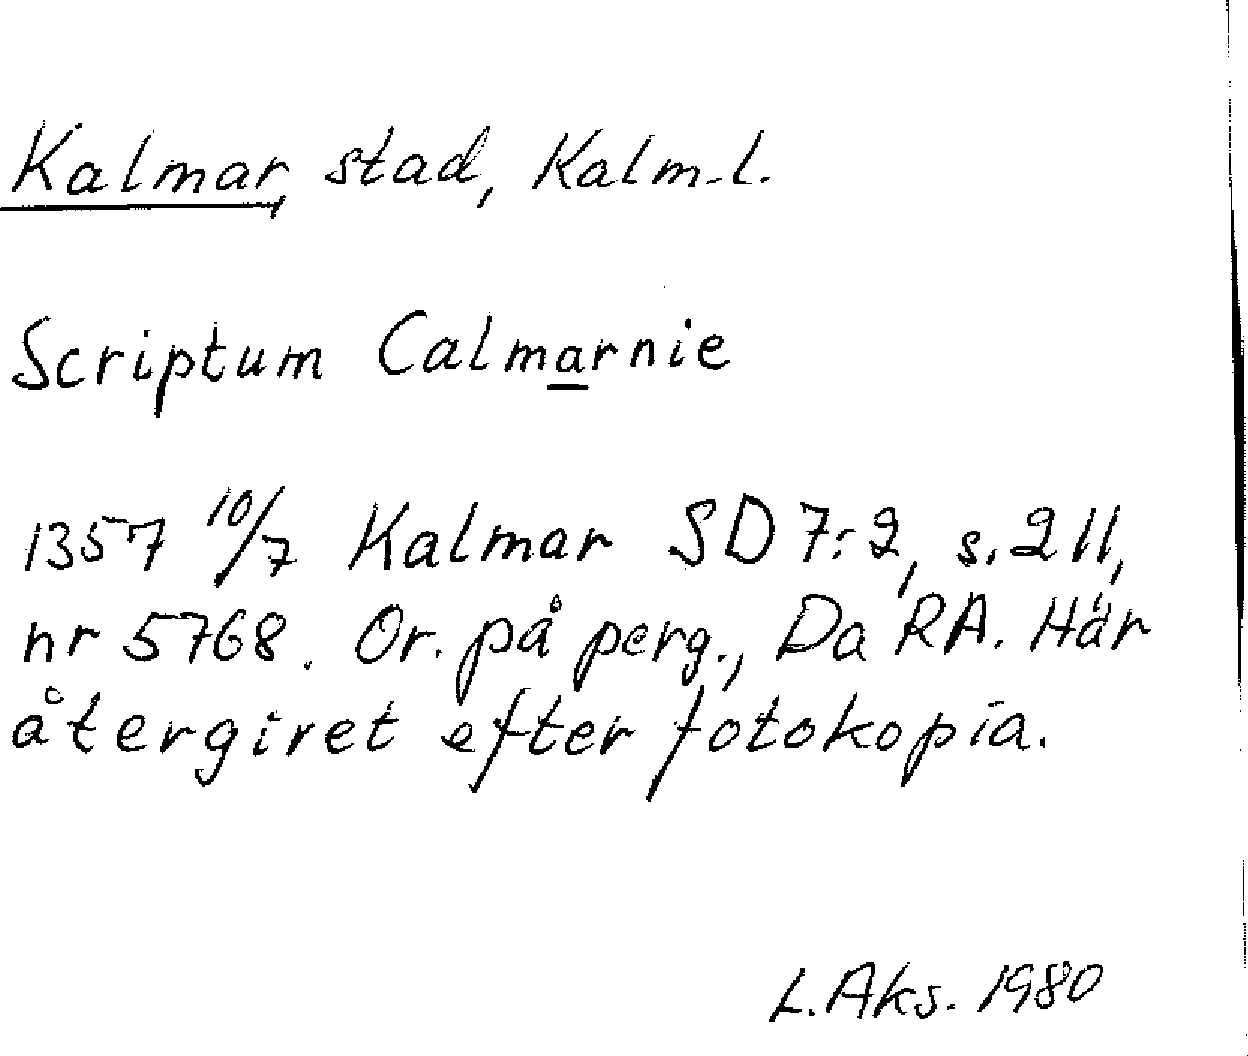 Kalmar, stad, Kalm.l.
Scriptum Calmarnie
1357 10/7 Kalmar SD 7:2, s. 211,
nr 5768. Or. på perg., Da RA. Här
återgivet efter fotokopia.
L. Aks. 1980